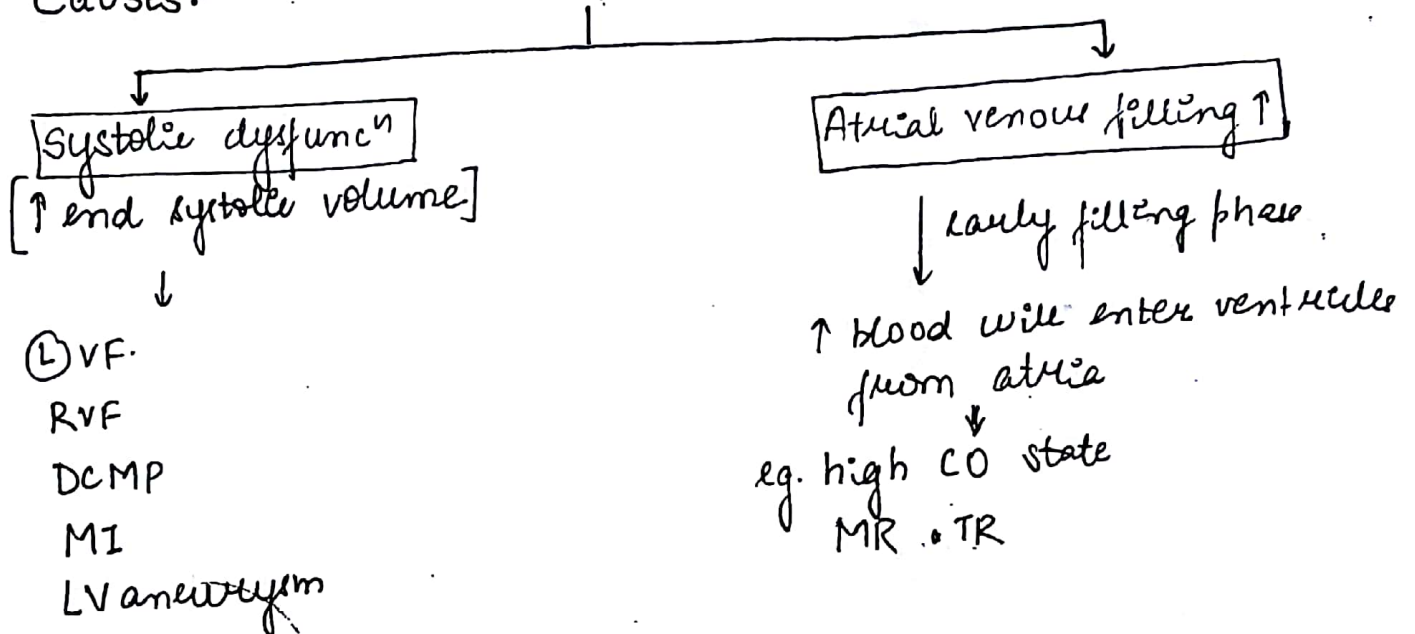 Causes:
Systolic dysfuncⁿ
[↑ end systolic volume]
↓
Ⓛ VF.
RVF
DCMP
MI
LV aneurysm
Atrial venous filling ↑
↓ early filling phase.
↑ blood will enter ventricles
from atria
↓
eg. high CO state
MR . TR